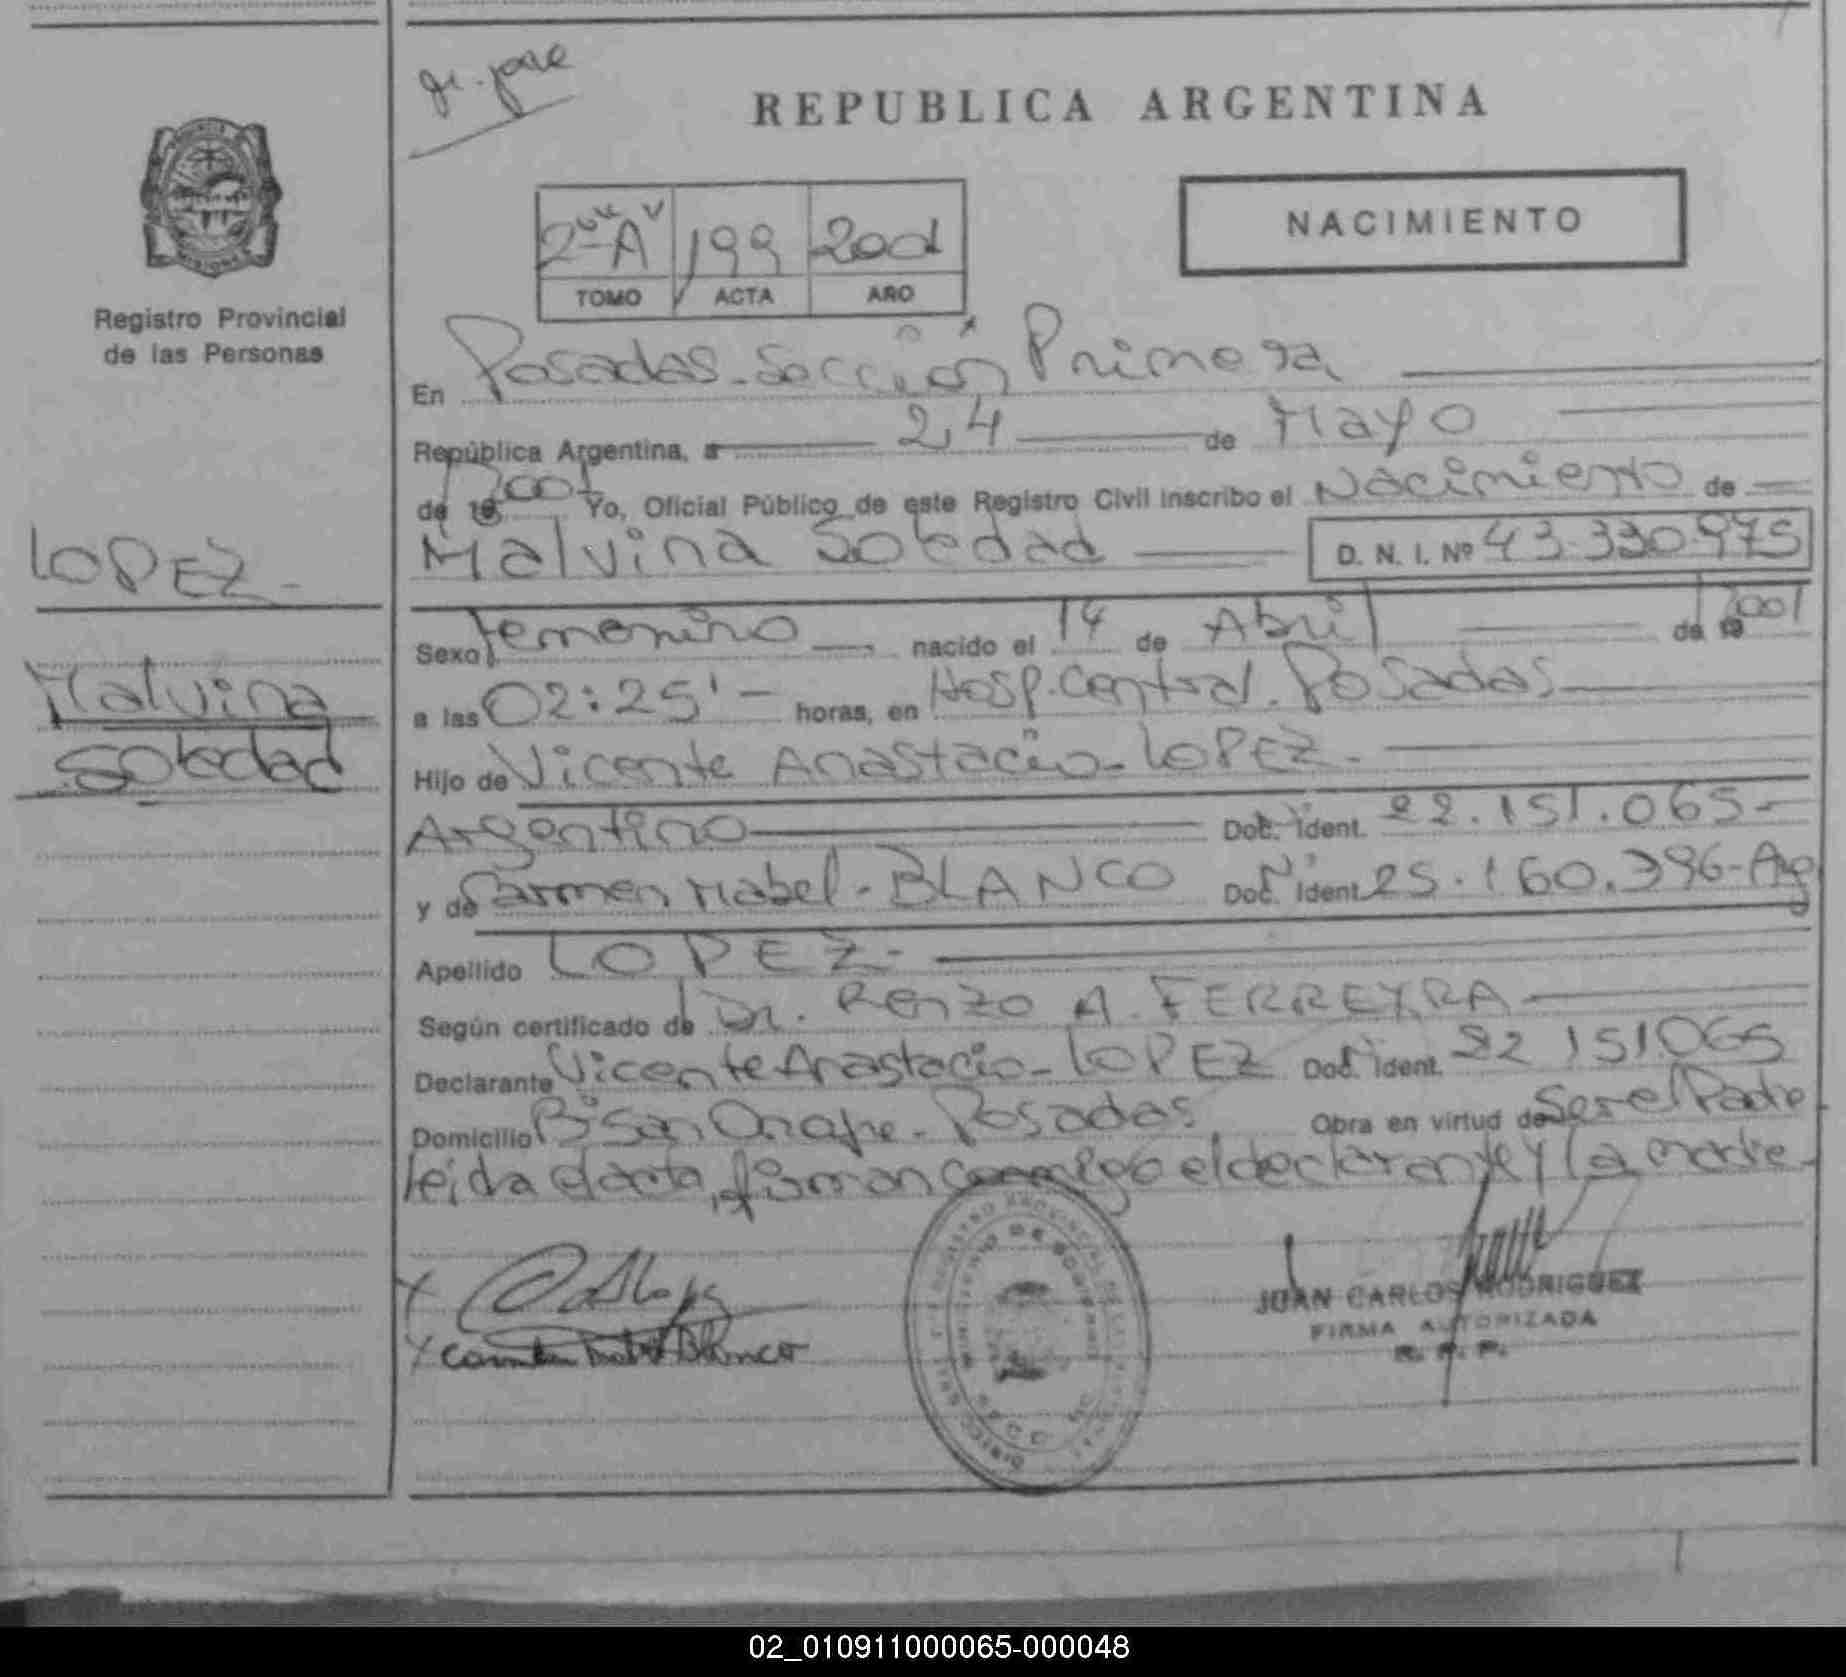 REPUBLICA ARGENTINA
NACIMIENTO
MISIONES
Registro Provincial
de las Personas
2º "A" 199 2001
TOMO ACTA AÑO
En Posadas - Sección Primera
República Argentina, a 24 de Mayo
de 19 2001 Yo, Oficial Público de este Registro Civil inscribo el Nacimiento de
LOPEZ -
Malvina Soledad D. N. I. Nº 43.330.975
Sexo femenino nacido el 14 de Abril de 19 2001
Malvina
Soledad
a las 02:25' - horas, en Hosp. Central. Posadas
Hijo de Vicente Anastacio - LOPEZ -
Argentino Doc. Ident. 22.151.065 -
y de Carmen Mabel - BLANCO Doc. Ident. 25.160.396 - Arg
Apellido LOPEZ -
Según certificado de Dr. Renzo A. FERREYRA
Declarante Vicente Anastacio - LOPEZ Doc. Ident. 22 151.065
Domicilio Bº San Onofre - Posadas Obra en virtud de Ser el Padre
leida el acta, firman conmigo el declarante y la madre -
JUAN CARLOS RODRIGUEZ
FIRMA AUTORIZADA
R. P. P.
Carmen Mabel Blanco
02_010911000065-000048